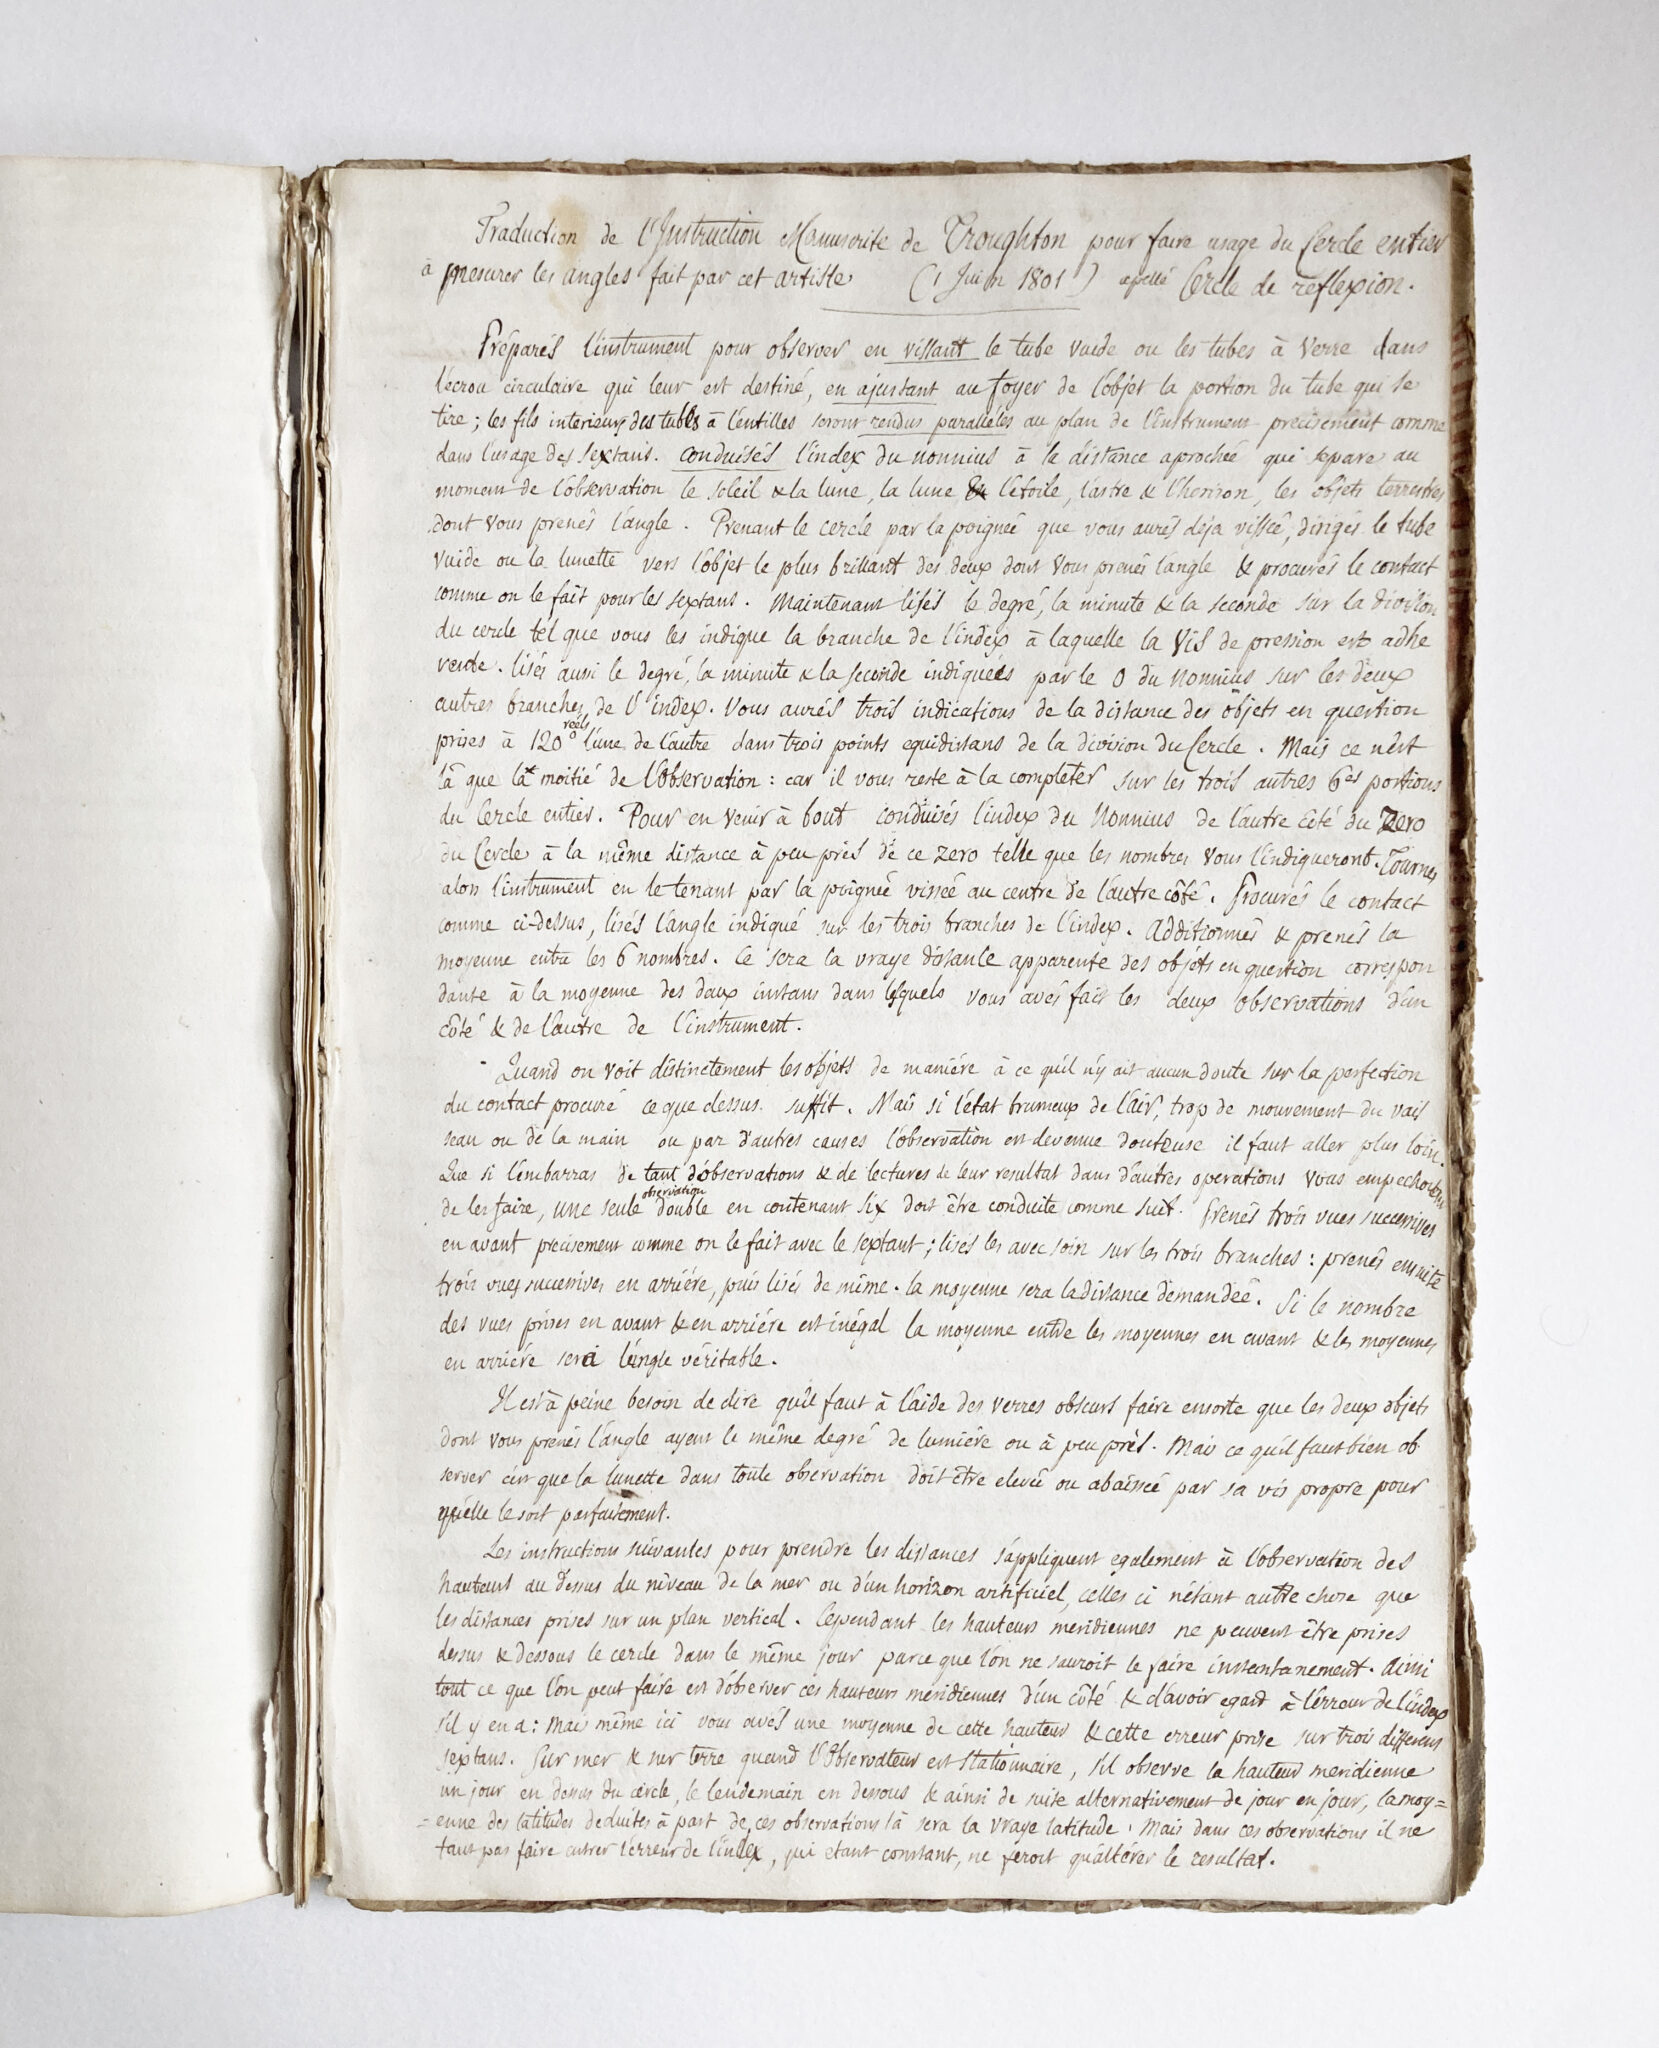 Traduction de l'Instruction Manuscrite de Troughton pour faire usage du Cercle entier
à mesurer les angles fait par cet artiste (1 Juin 1801) apellé Cercle de reflexion.
Préparés l'instrument pour observer en vissant le tube vuide ou les tubes à verre dans
l'écrou circulaire qui leur est destiné, en ajustant au foyer de l'objet la portion du tube qui se
tire ; les fils interieurs des tubes à lentilles seront rendus paralleles au plan de l'instrument precisement comme
dans l'usage des sextans. Conduisés l'index du nonnius à la distance aprochée qui separe au
moment de l'observation le soleil & la lune, la lune & l'étoile, l'astre & l'horizon, les objets terrestres
dont vous prenés l'angle. Prenant le cercle par la poignée que vous aurés déja vissée, dirigés le tube
vuide ou la lunette vers l'objet le plus brillant des deux dont vous prenés l'angle & procurés le contact
comme on le fait pour les sextans. Maintenant lisés le degré, la minute & la seconde sur la division
du cercle tel que vous les indique la branche de l'index à laquelle la vis de pression est adhe
rente. lisés aussi le degré, la minute & la seconde indiquées par le 0 du nonnius sur les deux
autres branches de l'index. Vous aurés trois indications de la distance des objets en question
prises à 120° réels l'une de l'autre dans trois points equidistans de la division du Cercle. Mais ce n'est
là que la moitié de l'observation : car il vous reste à la completer sur les trois autres 6es portions
du Cercle entier. Pour en venir à bout conduisés l'index du Nonnius de l'autre côté du Zero
du Cercle à la même distance à peu près de ce zero telle que les nombres vous l'indiqueront. Tournés
alors l'instrument en le tenant par la poignée vissée au centre de l'autre côté. Procurés le contact
comme ci-dessus, lisés l'angle indiqué sur les trois branches de l'index. Additionnés & prenés la
moyenne entre les 6 nombres. Ce sera la vraye distance apparente des objets en question correspon
dante à la moyenne des deux instans dans lesquels vous avés fait les deux observations d'un
côté & de l'autre de l'instrument.
Quand on voit distinctement les objets de maniére à ce qu'il n'y ait aucun doute sur la perfection
du contact procuré ce que dessus suffit. Mais si l'état brumeux de l'air, trop de mouvement du vais
seau ou de la main ou par d'autres causes l'observation est devenue douteuse il faut aller plus loin.
Que si l'embarras de tant d'observations & de lectures de leur resultat dans d'autres operations vous empechoient
de les faire, une seule observation double en contenant six doit être conduite comme suit. Prenés trois vues successives
en avant precisement comme on le fait avec le sextant ; lisés les avec soin sur les trois branches : prenés ensuite
trois vues successives en arriére, puis lisés de même. la moyenne sera la distance demandée. Si le nombre
des vues prises en avant & en arriére est inégal la moyenne entre les moyennes en avant & les moyennes
en arriére sera l'angle véritable.
Il est à peine besoin de dire qu'il faut à l'aide des verres obscurs faire ensorte que les deux objets
dont vous prenés l'angle ayent le même degré de lumiére ou à peu près. Mais ce qu'il faut bien ob
server c'est que la lunette dans toute observation doit être elevée ou abaissée par sa vis propre pour
qu'elle le soit parfaitement.
Les instructions suivantes pour prendre les distances s'appliquent egalement à l'observation des
hauteurs au dessus du niveau de la mer ou d'un horizon artificiel, celles ci n'étant autre chose que
les distances prises sur un plan vertical. Cependant les hauteurs meridiennes ne peuvent être prises
dessus & dessous le cercle dans le même jour parce que l'on ne sauroit le faire instantanement. Ainsi
tout ce que l'on peut faire est d'observer ces hauteurs meridiennes d'un côté & d'avoir egard à l'erreur de l'index
s'il y en a : Mais même ici vous avés une moyenne de cette hauteur & cette erreur prise sur trois differens
sextans. Sur mer & sur terre quand l'Observateur est stationnaire, s'il observe la hauteur meridienne
un jour en dessus du cercle, le lendemain en dessous & ainsi de suite alternativement de jour en jour, la moy=
=enne des latitudes deduites à part de ces observations là sera la vraye latitude. Mais dans ces observations il ne
faut pas faire entrer l'erreur de l'index, qui etant constant, ne feroit qu'altérer le resultat.